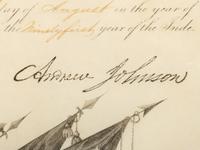 day of August in the year of
the Ninetyfirst year of the Inde
Andrew Johnson